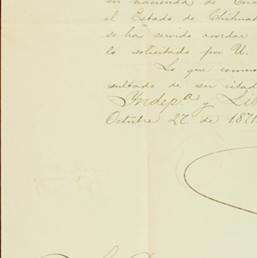 en hacienda de
el Estado de Chihuah
se ha servido acordar
lo solicitado por U.
Lo que comu
sultado de su citad
Indepa. y Lib
Octubre 27 de 1871